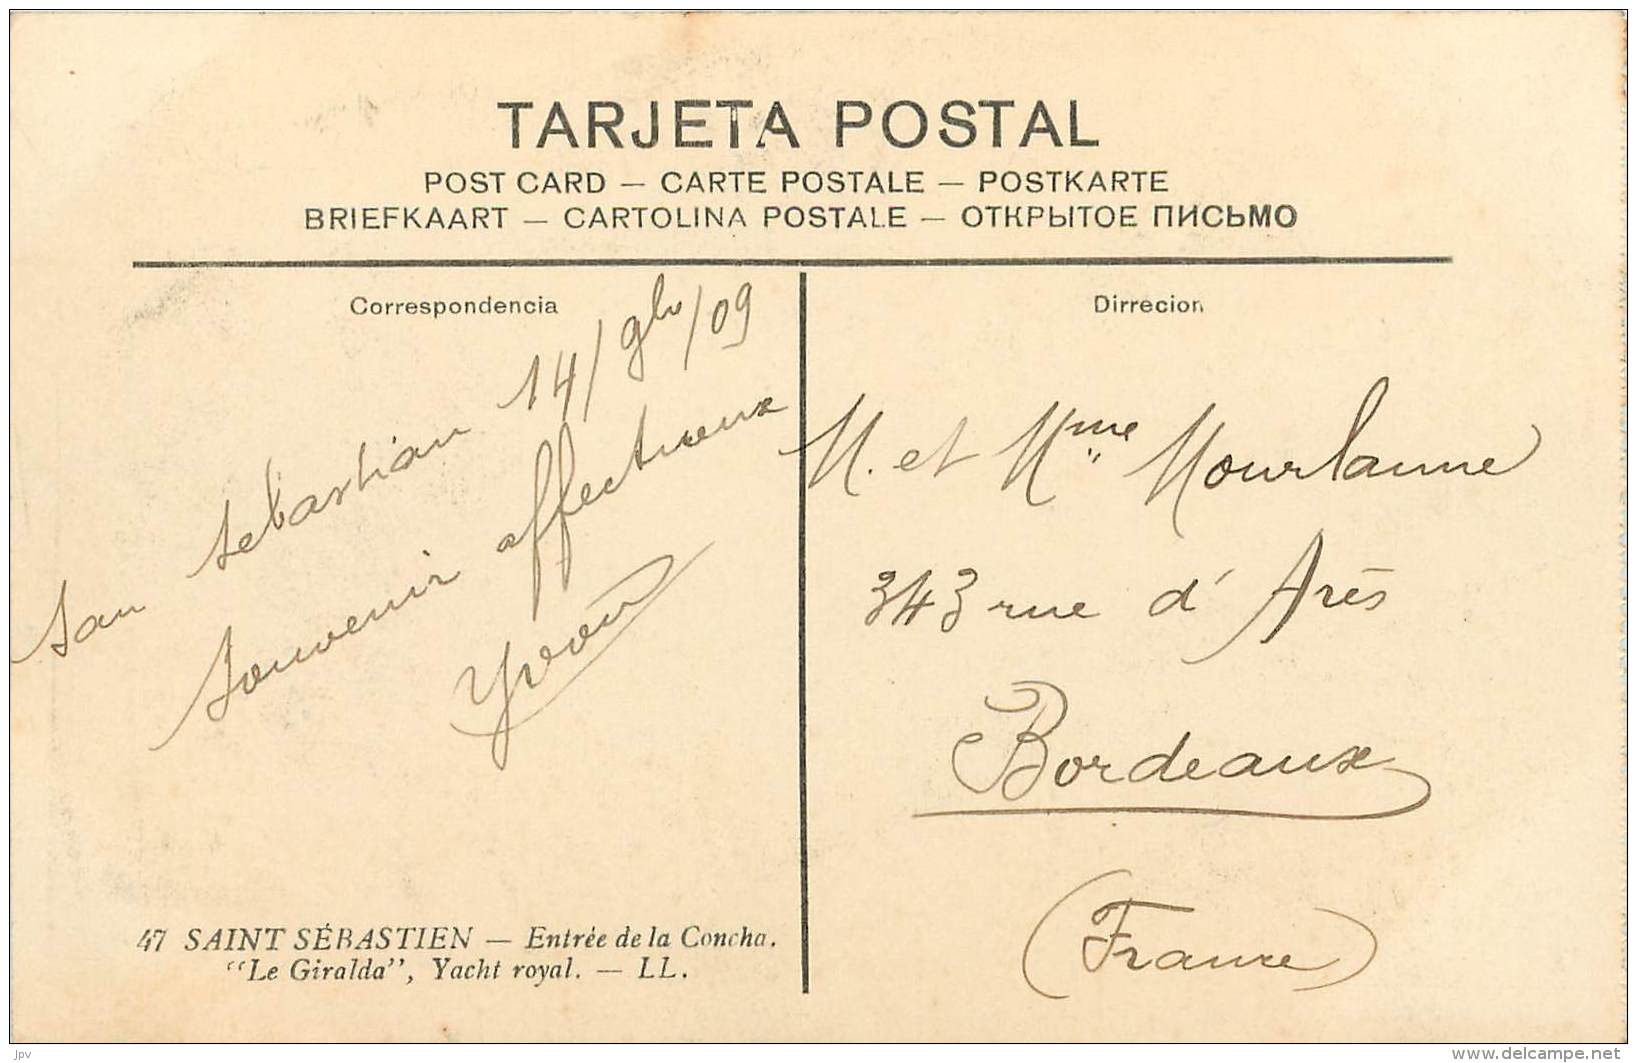 TARJETA POSTAL
POST CARD — CARTE POSTALE — POSTKARTE
BRIEFKAART — CARTOLINA POSTALE — ОТКРЫТОЕ ПИСЬМО
Correspondencia
San Sebastian 14/9bre/09
Souvenir affectueux
Yvonn
47 SAINT SÉBASTIEN — Entrée de la Concha.
"Le Giralda", Yacht royal. — LL.
Dirrecion
M. et Mme Mourlanne
343 rue d'Arès
Bordeaux
(France)
jpv
www.delcampe.net